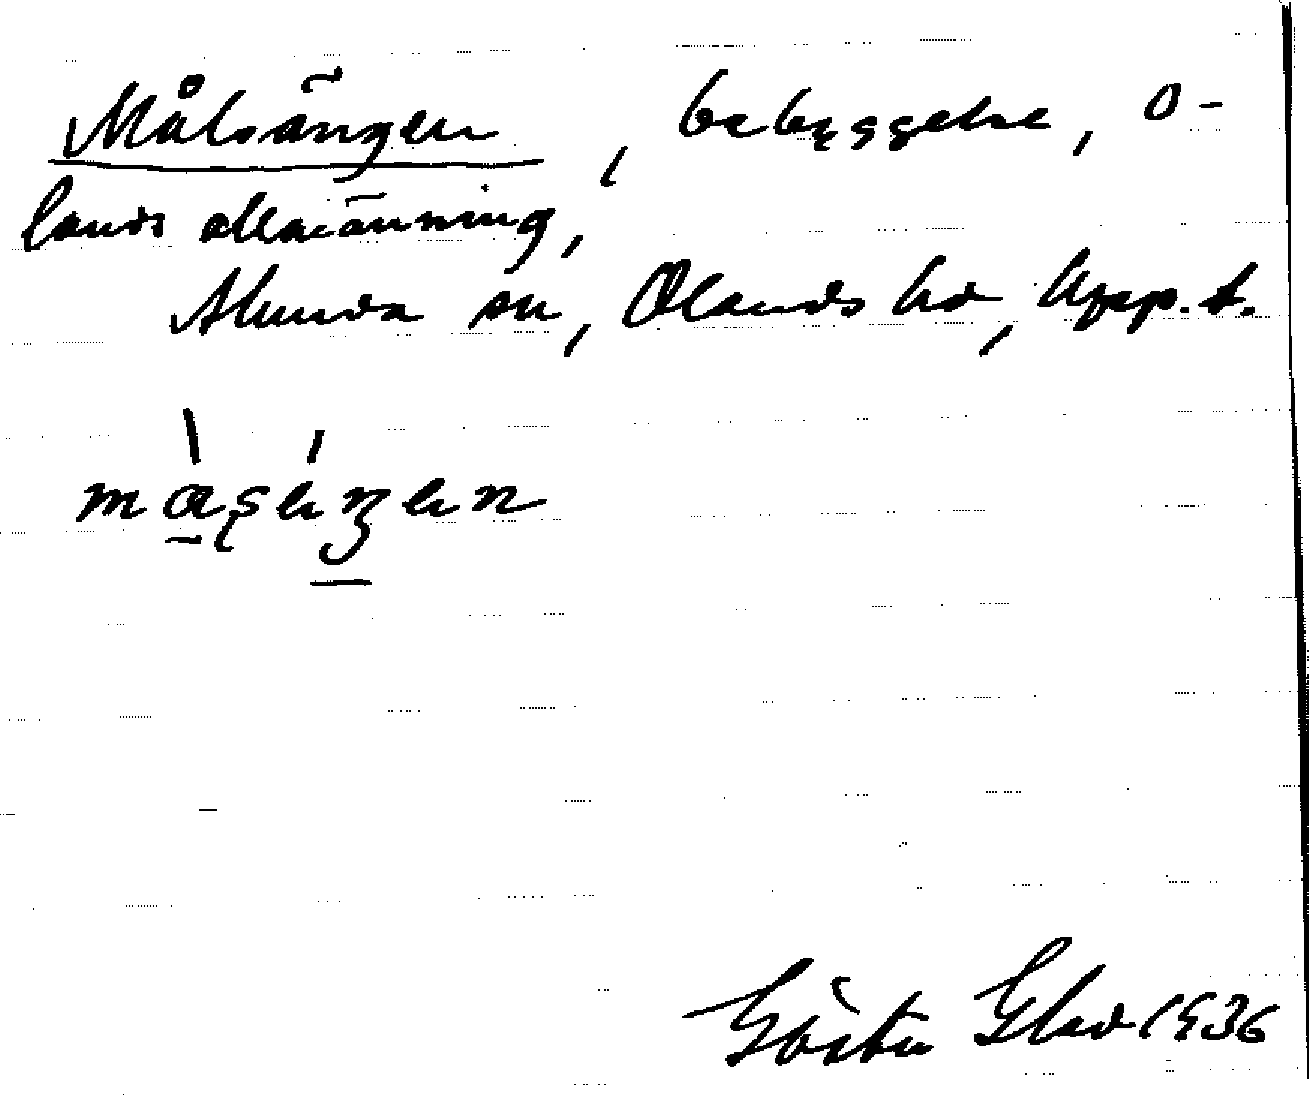 Målsängen, bebyggelse, O-
lands allmänning,
Alunda sn, Olands hd, Upps. l.
Gösta Glad 1936